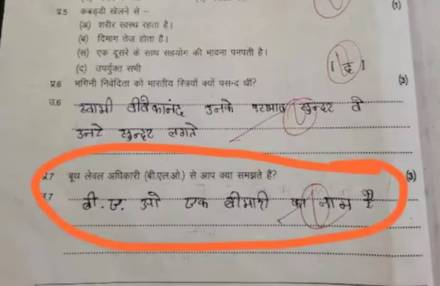 प्र.5 कबड्डी खेलने से – (1)
(अ) शरीर स्वस्थ रहता है।
(ब) दिमाग तेज होता है।
(स) एक दूसरे के साथ सहयोग की भावना पनपती है।
(द) उपर्युक्त सभी
[द]
प्र.6 भगिनी निवेदिता को भारतीय स्त्रियाँ क्यों पसन्द थीं? (2)
उ.6 स्वामी वीवेकानंद उनके सुन्दर वे
उनटे सुन्दर लगते
प्र.7 बूथ लेवल अधिकारी (बी.एल.ओ.) से आप क्या समझते है? (3)
बी. ए. ओ एक बीमारी का नाम है